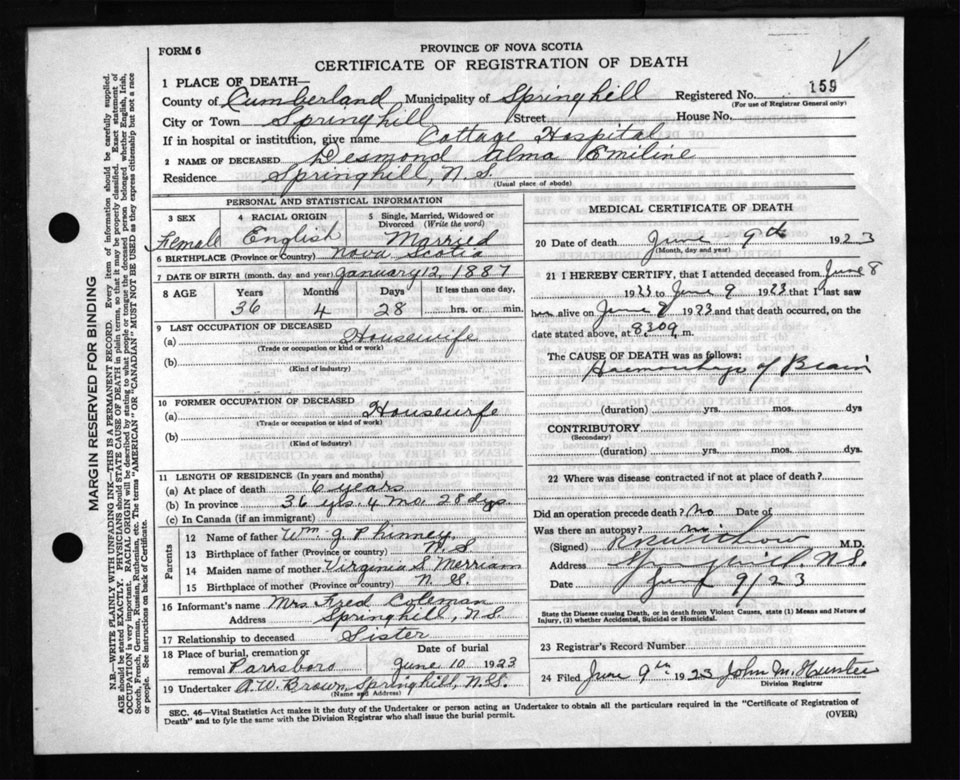 FORM 6
PROVINCE OF NOVA SCOTIA
CERTIFICATE OF REGISTRATION OF DEATH
1 PLACE OF DEATH—
County of Cumberland Municipality of Springhill Registered No. 159
(For use of Registrar General only)
City or Town Springhill Street House No.
If in hospital or institution, give name Cottage Hospital
2 NAME OF DECEASED Desmond Alma Emiline
Residence Springhill, N.S.
(Usual place of abode)
PERSONAL AND STATISTICAL INFORMATION
3 SEX Female
4 RACIAL ORIGIN English
5 Single, Married, Widowed or Divorced (Write the word) Married
6 BIRTHPLACE (Province or Country) Nova Scotia
7 DATE OF BIRTH (month, day and year) January 12, 1887
8 AGE Years Months Days If less than one day,
36 4 28 hrs. or min.
9 LAST OCCUPATION OF DECEASED
(a) Housewife
(Trade or occupation or kind or work)
(b)
(Kind of industry)
10 FORMER OCCUPATION OF DECEASED
(a) Housewife
(Trade or occupation or kind of work)
(b)
(Kind of industry)
11 LENGTH OF RESIDENCE (In years and months)
(a) At place of death 6 years
(b) In province 36 yrs. 4 mo. 28 dys
(c) In Canada (if an immigrant)
Parents
12 Name of father Wm J. Phinney
13 Birthplace of father (Province or country) N.S
14 Maiden name of mother Virginia S Merriam
15 Birthplace of mother (Province or country) N.S.
16 Informant's name Mrs. Fred Coleman
Address Springhill, N.S.
17 Relationship to deceased Sister
18 Place of burial, cremation or removal Parrsboro
Date of burial June 10 1923
19 Undertaker A.W. Brown, Springhill, N.S.
(Name and Address)
MEDICAL CERTIFICATE OF DEATH
20 Date of death June 9th 1923
(Month, day and year)
21 I HEREBY CERTIFY, that I attended deceased from June 8
1923 to June 9 1923 that I last saw
her alive on June 9 1923 and that death occurred, on
date stated above, at m.
The CAUSE OF DEATH was as follows:
Haemorrhage of Brain
(duration) yrs. mos. dys
CONTRIBUTORY
(Secondary)
(duration) yrs. mos. dys.
22 Where was disease contracted if not at place of death?
Did an operation precede death? No Date of
Was there an autopsy? no
(Signed) M.D.
Address Springhill. N.S.
Date June 9/23
State the Disease causing Death, or in death from Violent Causes, state (1) Means and Nature of Injury, (2) whether Accidental, Suicidal or Homicidal.
23 Registrar's Record Number
24 Filed June 9th 1923 John M. Hunter
Division Registrar
SEC. 46—Vital Statistics Act makes it the duty of the Undertaker or person acting as Undertaker to obtain all the particulars required in the "Certificate of Registration of
Death" and to fyle the same with the Division Registrar who shall issue the burial permit.
(OVER)
MARGIN RESERVED FOR BINDING
N.B.—WRITE PLAINLY WITH UNFADING INK—THIS IS A PERMANENT RECORD. Every item of information should be carefully supplied.
AGE should be stated EXACTLY. PHYSICIANS should STATE CAUSE OF DEATH in plain terms, so that it may be properly classified. Exact statement of
OCCUPATION is very important. RACIAL ORIGIN will be described by stating to what people or tongue the deceased person belonged whether English, Irish,
Scotch, French, German, Russian, Ruthenian, etc. The terms "AMERICAN" OR "CANADIAN" MUST NOT BE USED as they express citizenship but not a race
or people. See instructions on back of Certificate.